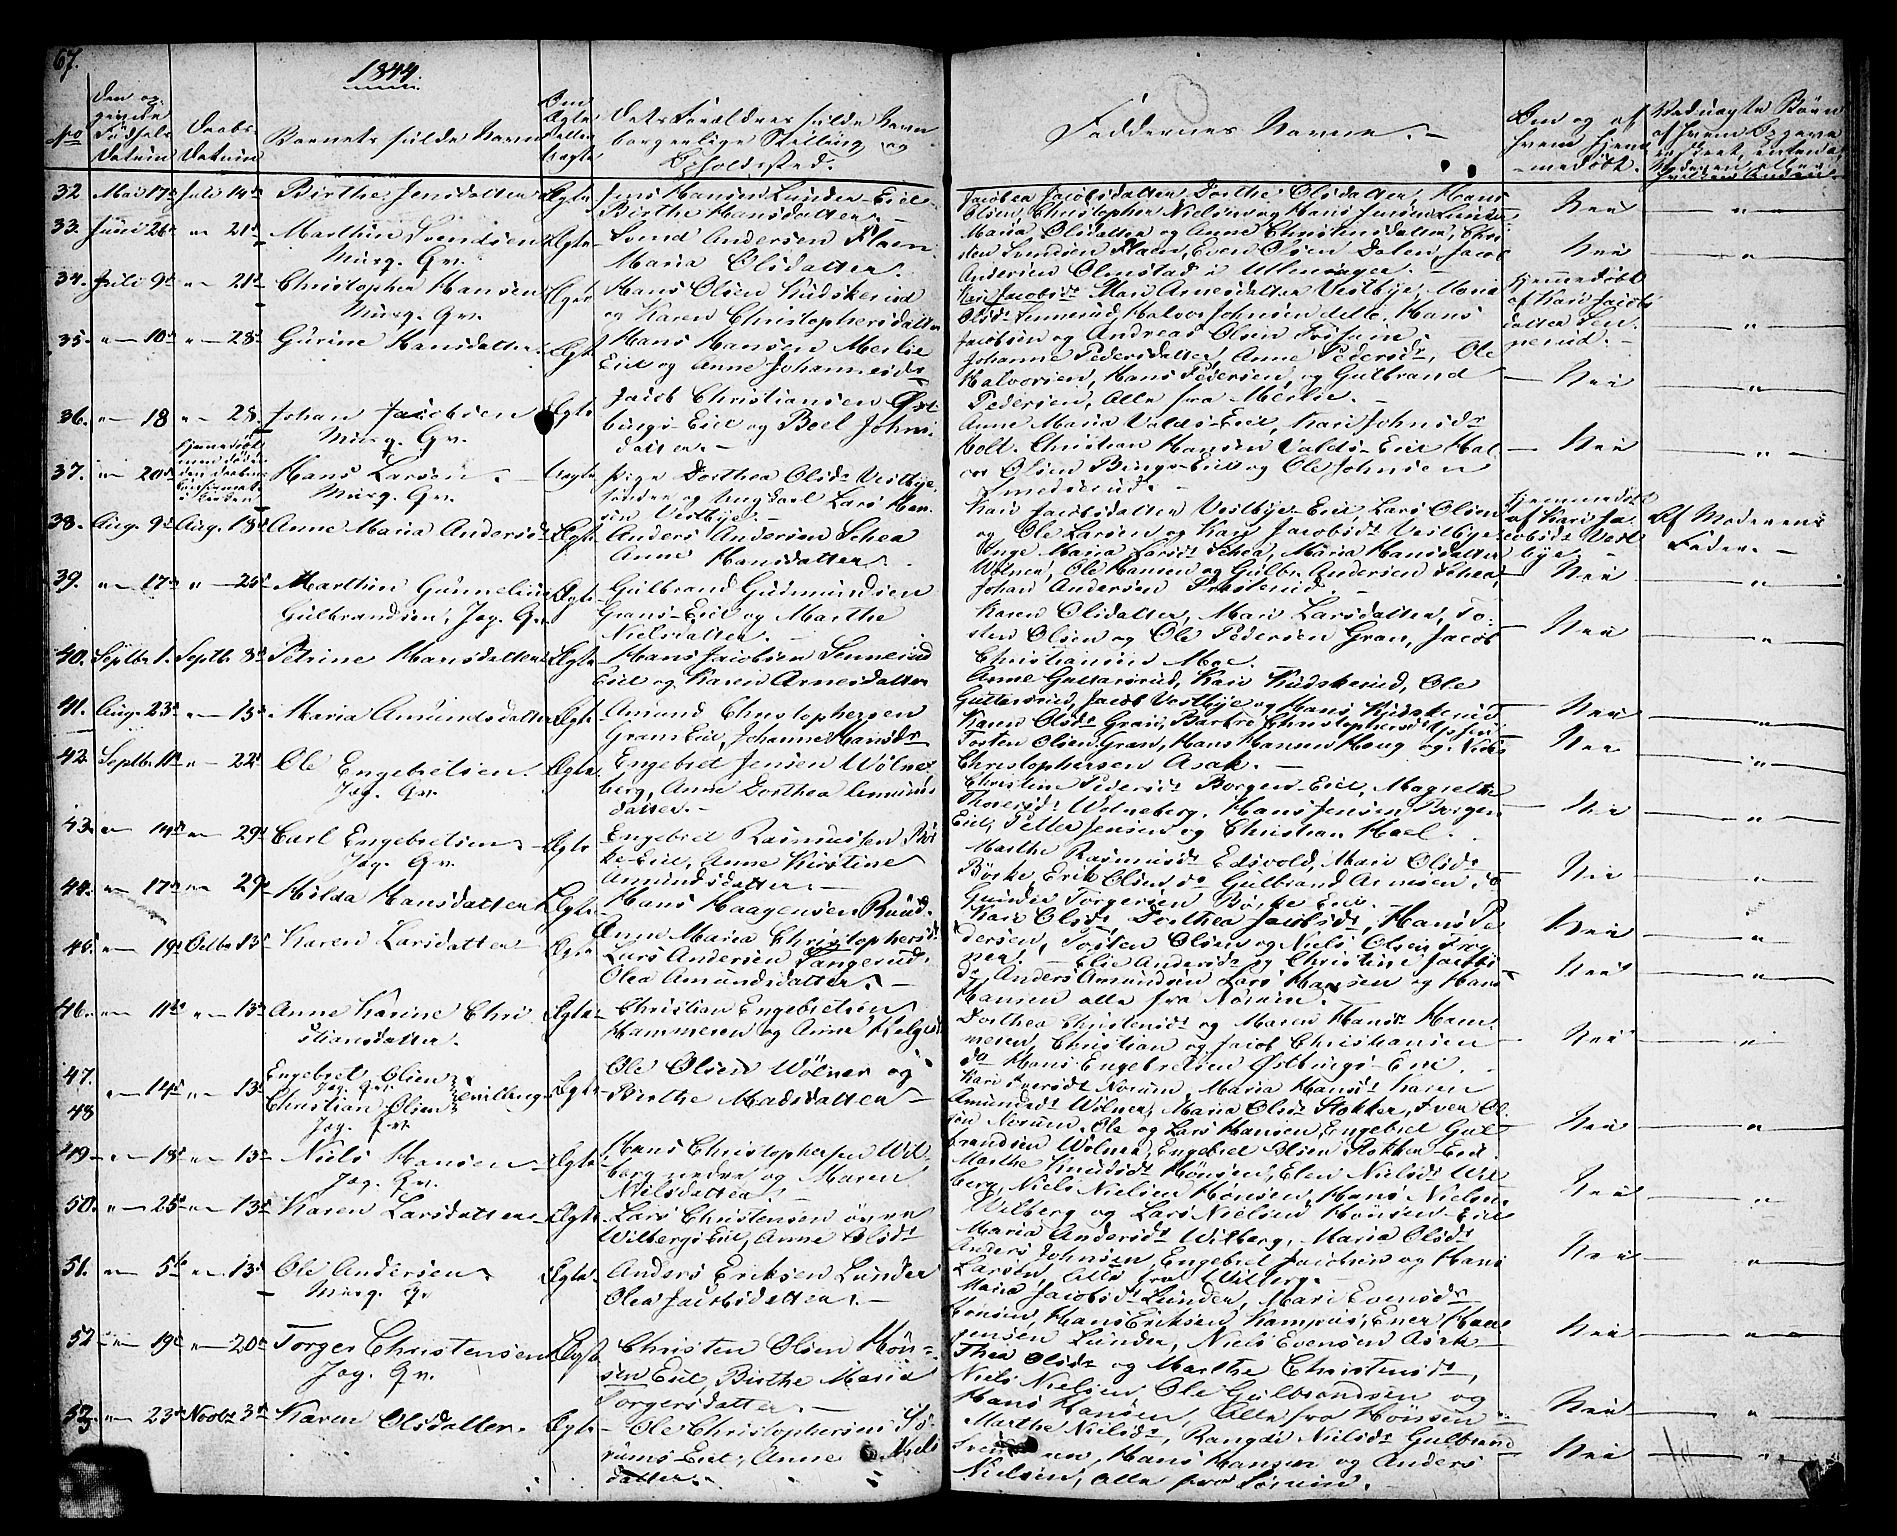 67.
1844.
No
Den op-
givne
Fødsels
Datum
Daabs
Datum
Barnets fulde Navn
Om
Ægte
eller
Uægte
Dets Forældres fulde Navn
borgerlige Stilling og
Opholdssted.
Faddernes Navne. –
Om og af
hvem hjem
-medøbt.
32 Mai 17de Juli 14de Birthe Jensdatter Ægte Jens Hansen Lunder-Eie
Birthe Hansdatter. –
Jacobea Jacobsdatter, Dorthe Olsdatter, Hans
Olsen, Christopher Nielsen og Hans Jensen Lunder
Nei
33. Juni 26de " 21de Marthin Svendsen Ægte Svend Andersen Flam
Maria Olsdatter.
Maria Olsdatter og Anne Christensdatter, Chri-
sten Svendsen Flam, Even Olsen Dalen, Jacob
Andersen Olmstad i Ullensager. –
Nei
34. Juli 9de " 21de Christopher Hansen Ægte Hans Olsen Kudskerud
og Karen Christophersdatter
Kari Jacobsdr Mari Arnesdatter Vestbye, Maria
Olsdr Sennerud, Halvor Johnsen ditto, Hans
Jacobsen og Andreas Olsen
Hjemmedøbt
af Kari Jacobs
datter Sen-
nerud. –
35. " 10de " 28de Gurine Hansdatter Ægte Hans Hansen Merlie
Eie og Anne Johannesdr
Johanne Pedersdatter, Anne Pedersdr, Ole
Halvorsen, Hans Pedersen, og Gulbrand
Pedersen, Alle fra Merlie. –
Nei
36. " 18 " 28. Johan Jacobsen Ægte Jacob Christiansen Øst-
bings-Eie og Beel Johns-
datter –
Anne Maria Valds-Eie, Kari Johnsdr
Holt. Christian Hansen Valds-Eie Hal-
vor Olsen Bings-Eie og Ole Johnsen
Nei
37. " 20de Hans Larsen. – Uægte Pige Dorthea Olsdr Vestbye
søndre og Ungkarl Lars Han-
sen Vestbye –
Kari Jacobsdatter Vestbye-Eie Lars Olsen
og Ole Larsen og Kari Jacobsdr Vestbye
Hjemmedøbt
af Kari Ja-
cobsdr Vest
bye. –
Af Moderens
Fader. –
38. Aug. 9de Aug. 18de Anne Maria Andersdr Ægte Anders Andersen Schea
Anne Hansdatter.
Inge Maria Larsdr Schea, Maria Hansdatter
Wølner, Ole Hansen og Gulbr. Andersen Schea,
Johan Andersen
Nei
39. " 17de " 25de Marthin Gunnelius
Gulbrandsen, Jag. Gv. Ægte Gulbrand Gudmundsen
Grans-Eie og Marthe
Nielsdatter. –
Karen Olsdatter, Mari Larsdatter, To-
sten Olsen og Ole Pedersen Gran, Jacob
Christiansen Moe.
Nei
40. Septbr 1. Septbr 8de Petrine Hansdatter Ægte Hans Jacobsen Sennerud
Eie og Karen Arnesdatter
Anne Guttersrud, Kari Kudskerud, Ole
Guttersrud, Jacob Vestbye og Hans Kudskerud
Nei
41. Aug. 23de " 15de Maria Amundsdatter Ægte Amund Christophersen
Grans Eie, Johanne Hansdr
Karen Olsdr Gran, Barbro Christophersdr
Tosten Olsen Gran, Hans Hansen Haug og Niels
Christophersen Asak. –
Nei
42. Septbr 11te " 22de Ole Engebretsen. Jag. Gv. Ægte Engebret Jensen Wølne-
berg, Anne Dorthea Amunds
datter. –
Christen Pedersdr Borgen-Eie, Magrethe
Thorersdr Wølneberg, Hans Jensen Borgen
Eie, Petter Jensen og Christian Hoel.
Nei
43. " 14de " 29de Carl Engebretsen Jag. Gv. Ægte Engebret Rasmussen Bør-
ke-Eie, Anne Kirstine
Amundsdatter –
Marthe Rasmusdr Edsvold, Mari Olsdr
Børke, Erik Olsen do Gulbrand Arnesen, do
Gunder Torgersen Børke Eie. –
Nei
44. " 17de " 29de Hilda Hansdatter Ægte Hans Haagensen Ruud.
Anne Maria Christophersdr
Kari Olsdr, Dorthea Jacobsdr, Hans Pe
dersen, Tosten Olsen og Niels Olsen Frog-
ner. –
Nei
45. " 19de Octbr 13de Karen Larsdatter Ægte Lars Andersen Tangerud.
Olea Amundsdatter. –
Elie Andersdr og Christine Jacobs
dr, Anders Amundsen Lars Hansen og Hans
Hansen alle fra Norum.
Nei
46. " 11te " 13de Anne Karine Chri
stiansdatter. Ægte Christian Engebretsen
Hammeren og Anne Helgesdr
Dorthea Christensdr og Maren Hansdr Ham-
meren, Christian og Jacob Christiansen
do Hans Engebretsen Østbings-Eie. –
Nei
47.
48 " 14de " 13de Engebret Olsen Jag. Gv.
Christian Olsen Jag. Gv. Tvilling Ægte Ole Olsen Wølner og
Birthe Madsdatter –
Kari Iversdr Norum, Maria Hansdr Karen
Amundsdr Wølner, Maria Olsdr Stokker, Iver Ol-
sen Norum, Ole og Lars Hansen, Engebret Gul-
brandsen Wølner, Engebret Olsen Stokker-Eie.
Nei
49 " 18de " 13de Niels Hansen Jag. Gv. Ægte Hans Christophersen Wil-
berg nedre, og Maren
Nilsdatter –
Marthe Knudsdr Hønsen, Elen Nielsdr Wil
berg, Niels Nielsen Hønsen, Hans Nielsen
Wilberg og Lars Nielsen Hønsen-Eie
Nei
50. " 25de " 13de Karen Larsdatter Ægte Lars Christensen øvre
Wilbergs Eie, Anne Olsdr
Maria Andersdr Wilberg, Maria Olsdr
Anders Johnsen, Engebret Jacobsen og Hans
Larsen, Alle fra Wilberg. –
Nei
51. " 5te " 13de Ole Andersen Ægte Anders Eriksen Lunder
Olea Jacobsdatter. –
Maria Jacobsdr Lunder, Mari Evensdr
Hønsen, Hans Eriksen Kampaas, Even Haa-
gensen Lunder, Niels Evensen Asak
Nei
52 " 19de " 20de Torger Christensen Jag. Gv. Ægte Christen Olsen Høn-
sen Eie, Birthe Maria
Torgersdatter –
Thea Olsdr og Marthe Christensdr,
Niels Nielsen, Ole Gulbrandsen og
Hans Hansen, Alle fra Hønsen
Nei
53. " 23de Novbr 3de Karen Olsdatter. Ægte Ole Christophersen Sø-
rums-Eie, Anne Niels
datter. –
Marthe Nielsdr, Rangdi Nielsdr Gulbrand
Svendsen, Hans Hansen og Anders
Nielsen, alle fra Sørum. –
Nei